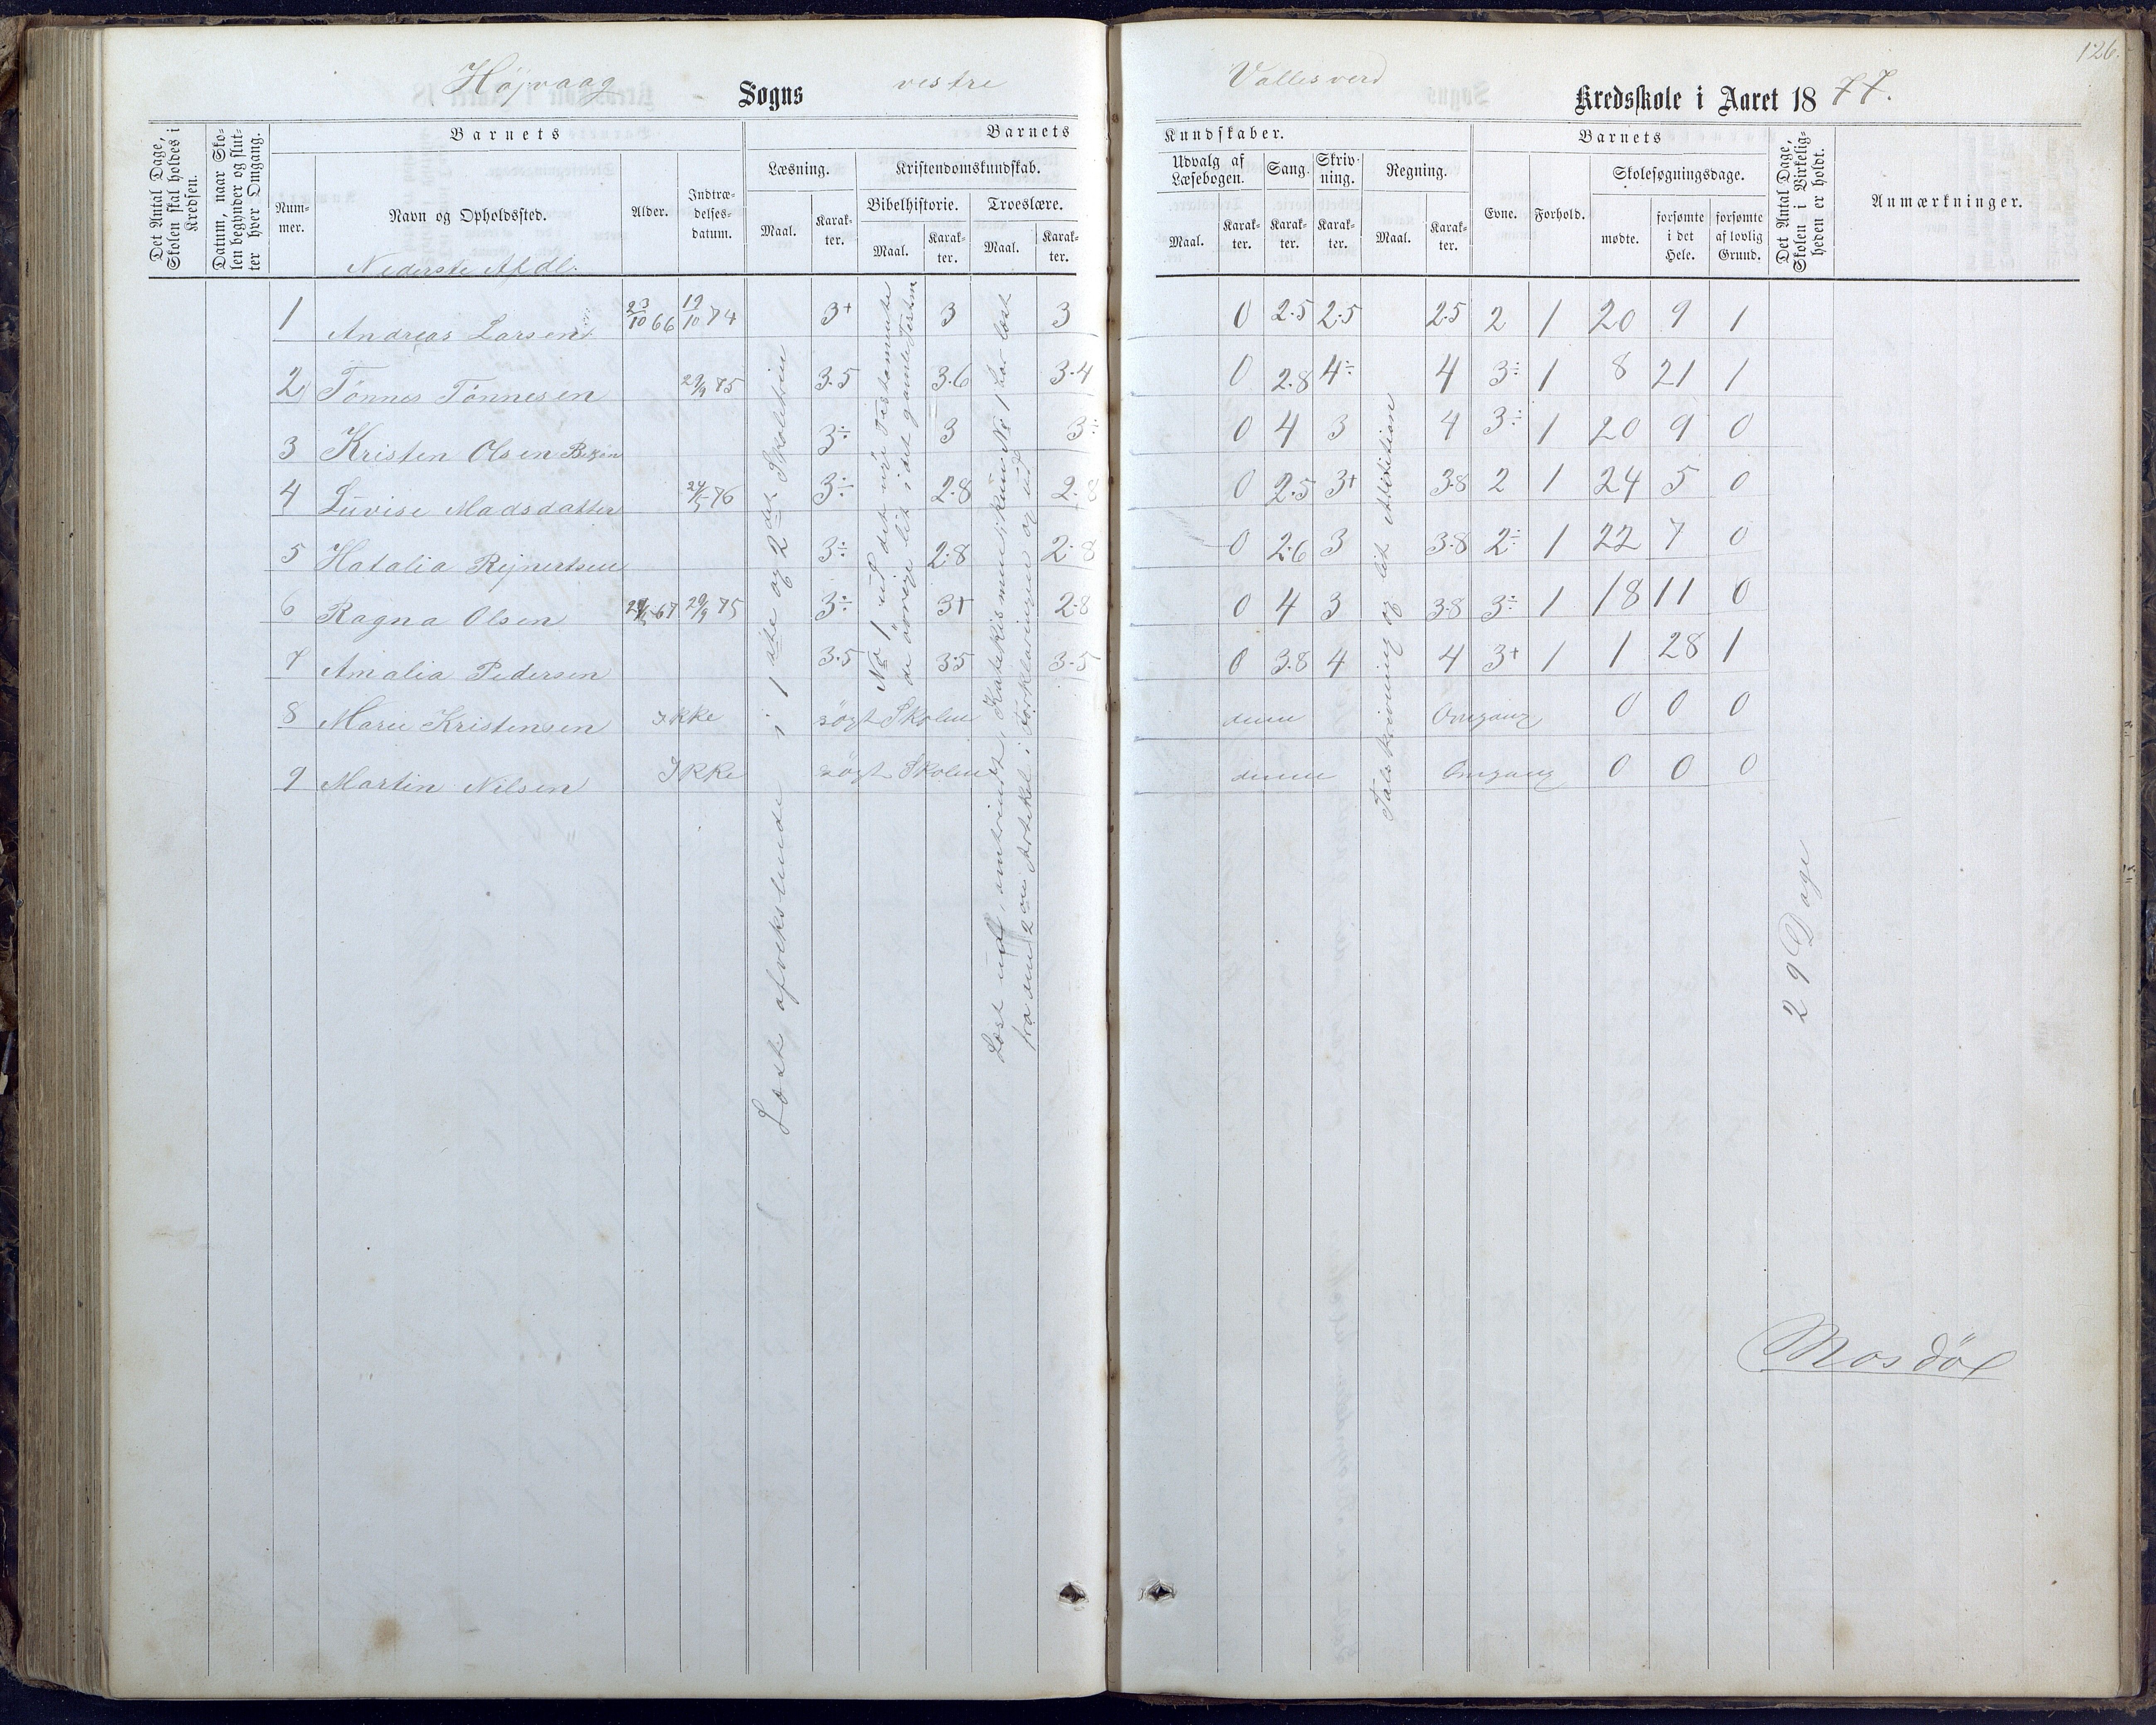 126.
Höjvaag Sogns vestre Vallesverd Kredsskole i Aaret 1877.
Det Antal Dage, Skolen skal holdes i Kredsen.
Datum, naar Skolen begynder og slutter hver Omgang.
Barnets
Nummer.
Navn og Opholdssted.
Alder.
Indtrædelsesdatum.
Barnets Kundskaber.
Læsning.
Maal.
Karakter.
Kristendomskundskab.
Bibelhistorie.
Maal.
Karakter.
Troeslære.
Maal.
Karakter.
Udvalg af Læsebogen.
Maal.
Karakter.
Sang.
Karakter.
Skrivning.
Karakter.
Regning.
Maal.
Karakter.
Barnets
Evne.
Forhold.
Skolesøgningsdage.
mødte.
forsømte i det Hele.
forsømte af lovlig Grund.
Det Antal Dage, Skolen i Virkeligheden er holdt.
Anmærkninger.
Nederste Afdl.
1 Andreas Larsen 23/10 66 19/10 74 3+ 3 3 0 2.5 2.5 2.5 2 1 20 9 1
2 Tönnes Tönnesen 29/9 75 3.5 3.6 3.4 0 2.8 4÷ 4 3÷ 1 8 21 1
3 Kristen Olsen 3÷ 3 3÷ 0 4 3 4 3÷ 1 20 9 0
4 Luvise Madsdatter 76 3÷ 2.8 2.8 0 2.5 3+ 3.8 2 1 24 5 0
5 Hatalia Rejnertsen 3÷ 2.8 2.8 0 2.6 3 3.8 2÷ 1 22 7 0
6 Ragna Olsen 67 29/9 75 3÷ 3+ 2.8 0 4 3 3.8 3÷ 1 18 11 0
7 Amalia Pedersen 3.5 3.5 3.5 0 3.8 4 4 3+ 1 1 28 1
8 Marie Kristensen Ikke søgt Skolen denne Omgang 0 0 0
9 Martin Nilsen Ikke søgt Skolen denne Omgang 0 0 0
Læst afvekslende i 1ste og 2den Skoletrin
No 1 ud det nye Testamente
de övrige lit i det gamle Testm
Læst ud omtrent Katekismen: kun No 1 har læst
fra den 2den Artikel i Forklaringen og ud
Talskrivning og lit Addition
29 Dage
Mosdöl